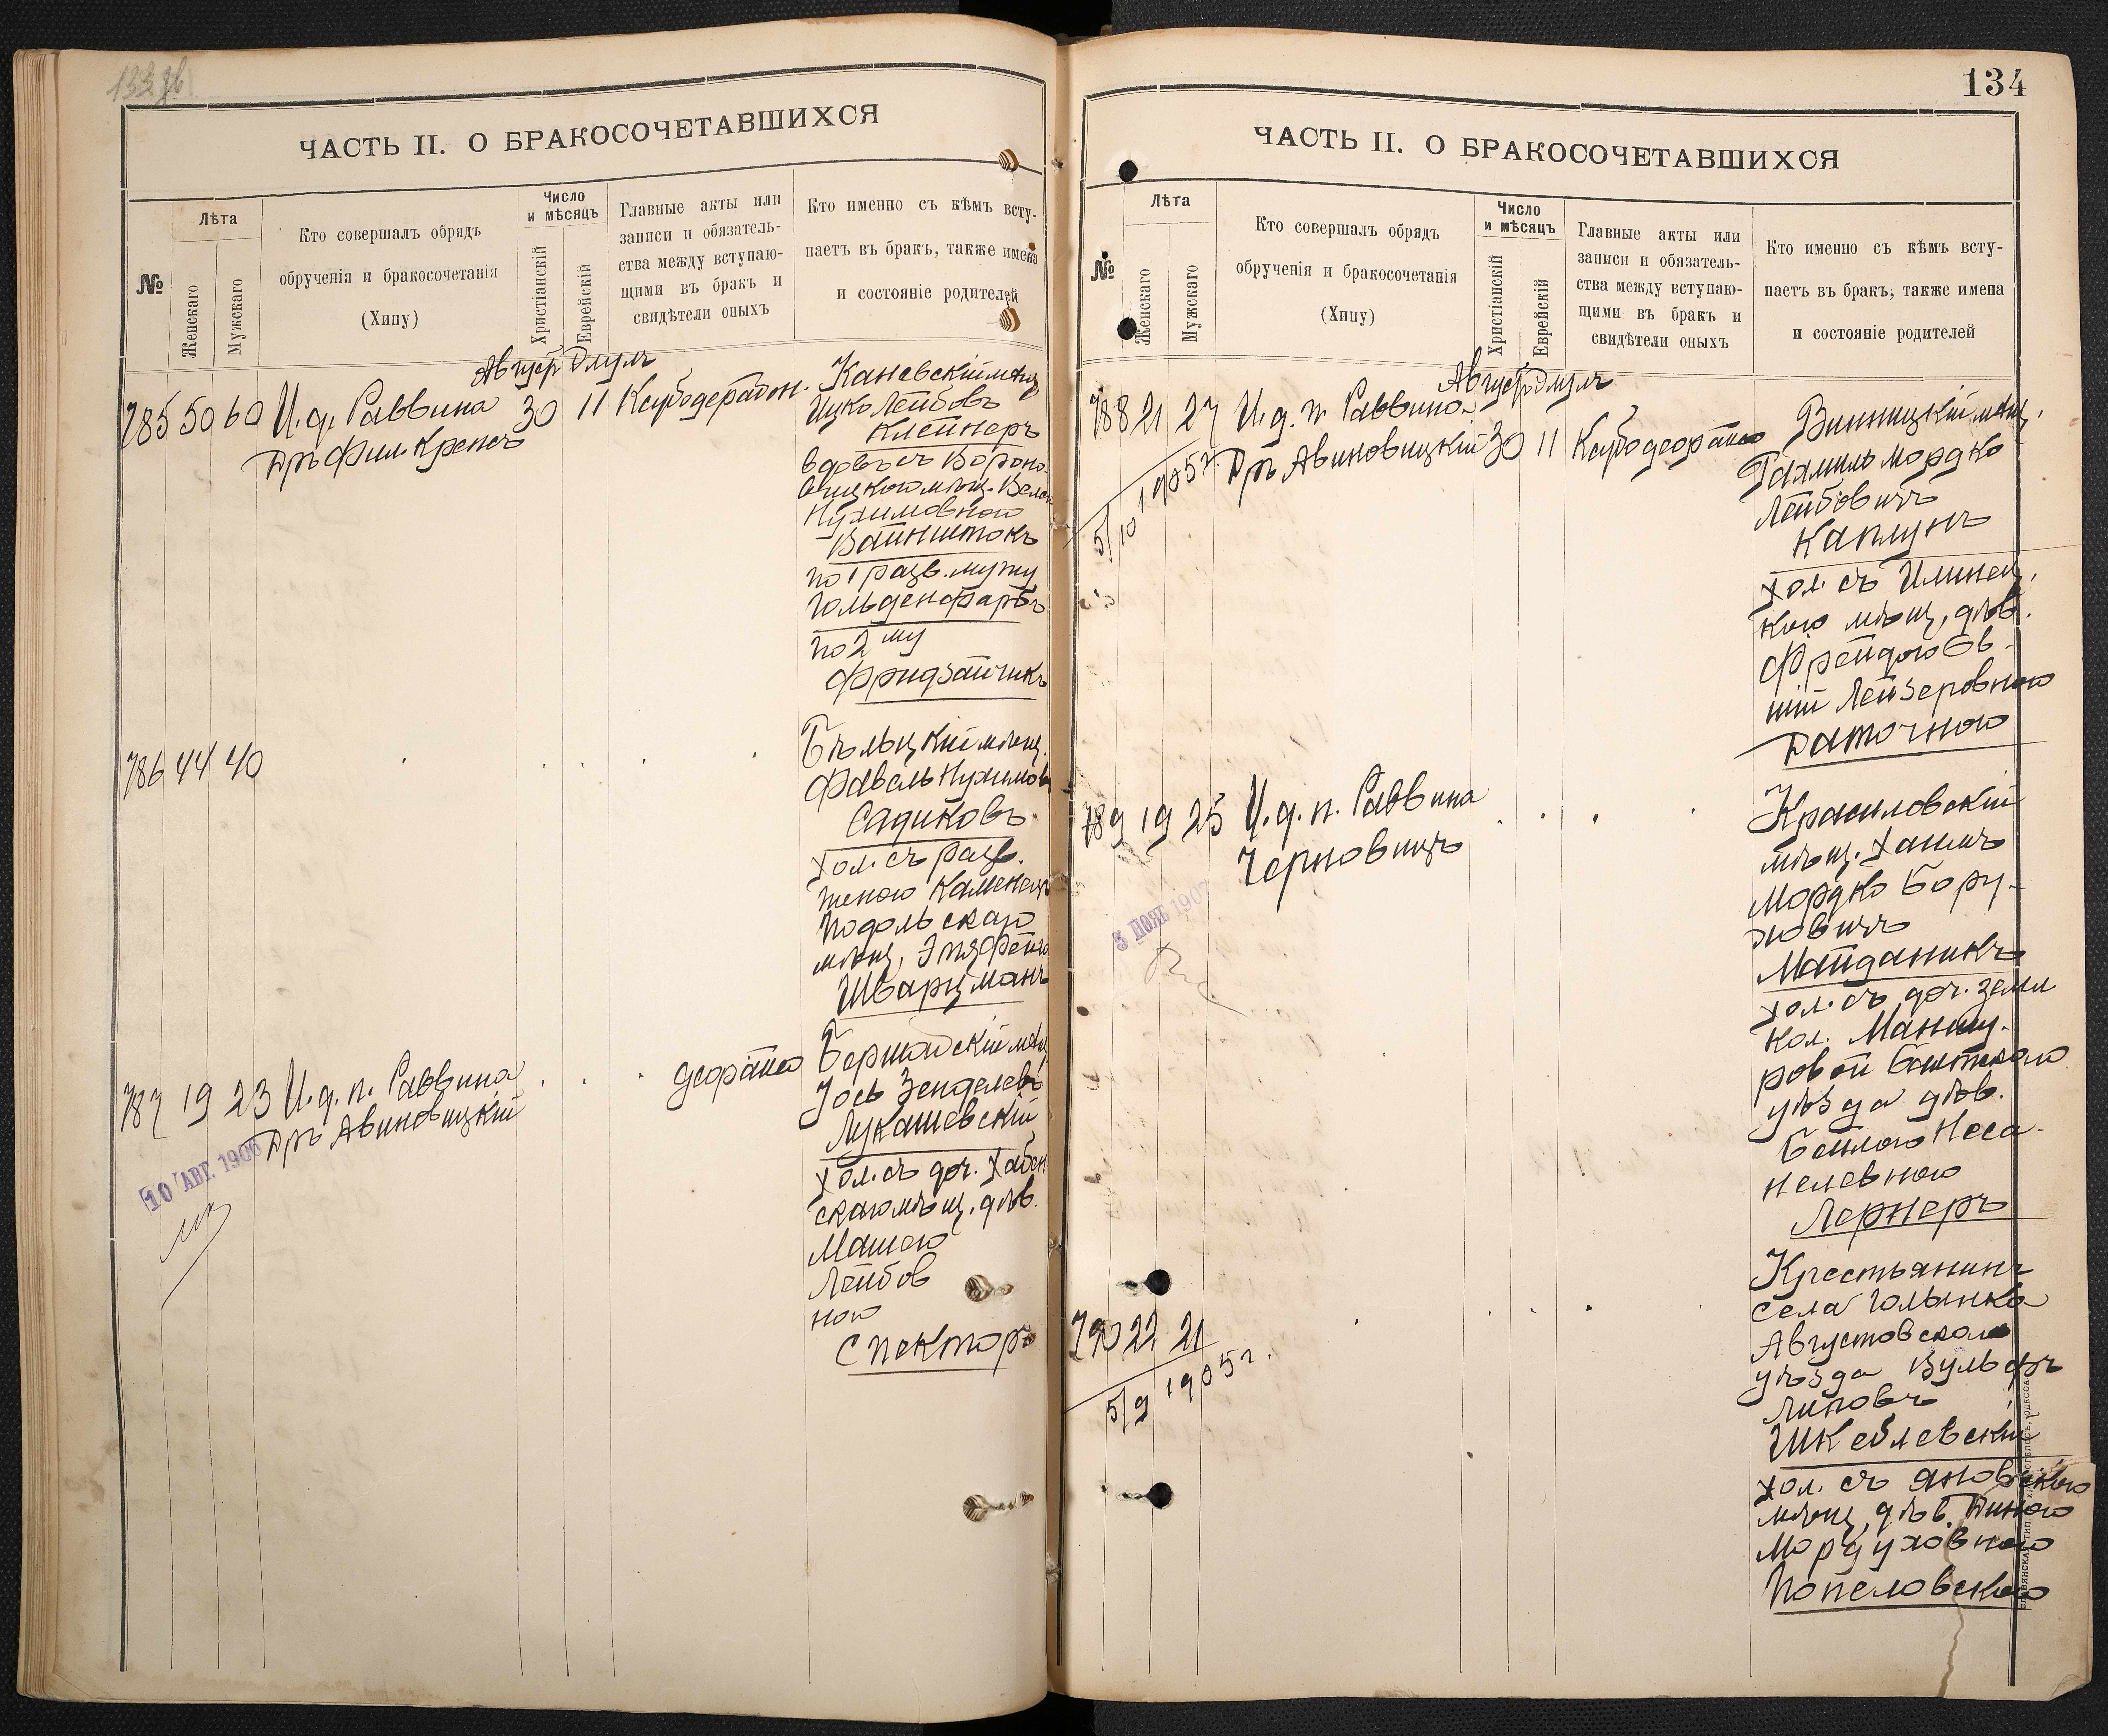 133 об
ЧАСТЬ II. О БРАКОСОЧЕТАВШИХСЯ
№
Лѣта
Женскаго
Мужскаго
Кто совершалъ обрядъ
обрученія и бракосочетанія
(Хипу)
Число
и мѣсяцъ
Христіанскій
Еврейскій
Главные акты или
записи и обязатель-
ства между вступаю-
щими въ бракъ и
свидѣтели оныхъ
Кто именно съ кѣмъ всту-
паетъ въ бракъ, также имена
и состояніе родителей
Августъ Элулъ
785 50 60 И. д. Раввина 30 11
Дръ Фил. Крепсъ
Каневскій мѣщ.
Ицко Лейбовъ
Клейнеръ
вдовъ съ Вороно-
вицкою мѣщ.
Нухимовною
Вайнштокъ
по 1 разв. мужу
Гольденфарбъ
по 2 му
Фридзайчикъ
786 44 40
Бѣльцкій мѣщ.
Файвель Нухимовъ
Садиковъ
хол. съ разв.
женою Каменецъ
Подольскаго
мѣщ.
Шварцманъ
787 19 23 И. д. п. Раввина
Дръ Авиновицкій
10 АВГ. 1906
Бершадскій мѣщ.
Іось Зенделевъ
Лукашевскій
хол. съ доч. Хабен-
скаго мѣщ. дѣв.
Машею
Лейбов
ною
Спекторъ
134
ЧАСТЬ II. О БРАКОСОЧЕТАВШИХСЯ
№
Лѣта
Женскаго
Мужскаго
Кто совершалъ обрядъ
обрученія и бракосочетанія
(Хипу)
Число
и мѣсяцъ
Христіанскій
Еврейскій
Главные акты или
записи и обязатель-
ства между вступаю-
щими въ бракъ и
свидѣтели оныхъ
Кто именно съ кѣмъ всту-
паетъ въ бракъ, также имена
и состояніе родителей
Августъ Элулъ
788 21 27 И. д. п. Раввина
Дръ Авиновицкій 30 11
5/10 1905 г.
Винницкій мѣщ.
Рахмиль Мордко
Лейбовичъ
Каплунъ
хол. съ Илинец-
кою мѣщ. дѣв.
Фрейдою Ев-
ній Лейзеровною
Даточною
789 19 25 И. д. п. Раввина
Черновицъ
3 НОЯБ 1907
Красиловскій
мѣщ. Хаимъ
Мордко Бору-
ховичъ
Майданикъ
хол. съ доч. земл
кол. Манзы-
ровой
уѣзда дѣв.
Бейлою Неса-
нелевною
Лернеръ
790 22 21
5/9 1905 г.
Крестьянинъ
села Голынка
Августовскаго
уѣзда Вульфъ
Липовъ
Шкевлевскій
хол. съ Яновскою
мѣщ. дѣв. Диною
Мордуховною
Попеловскою